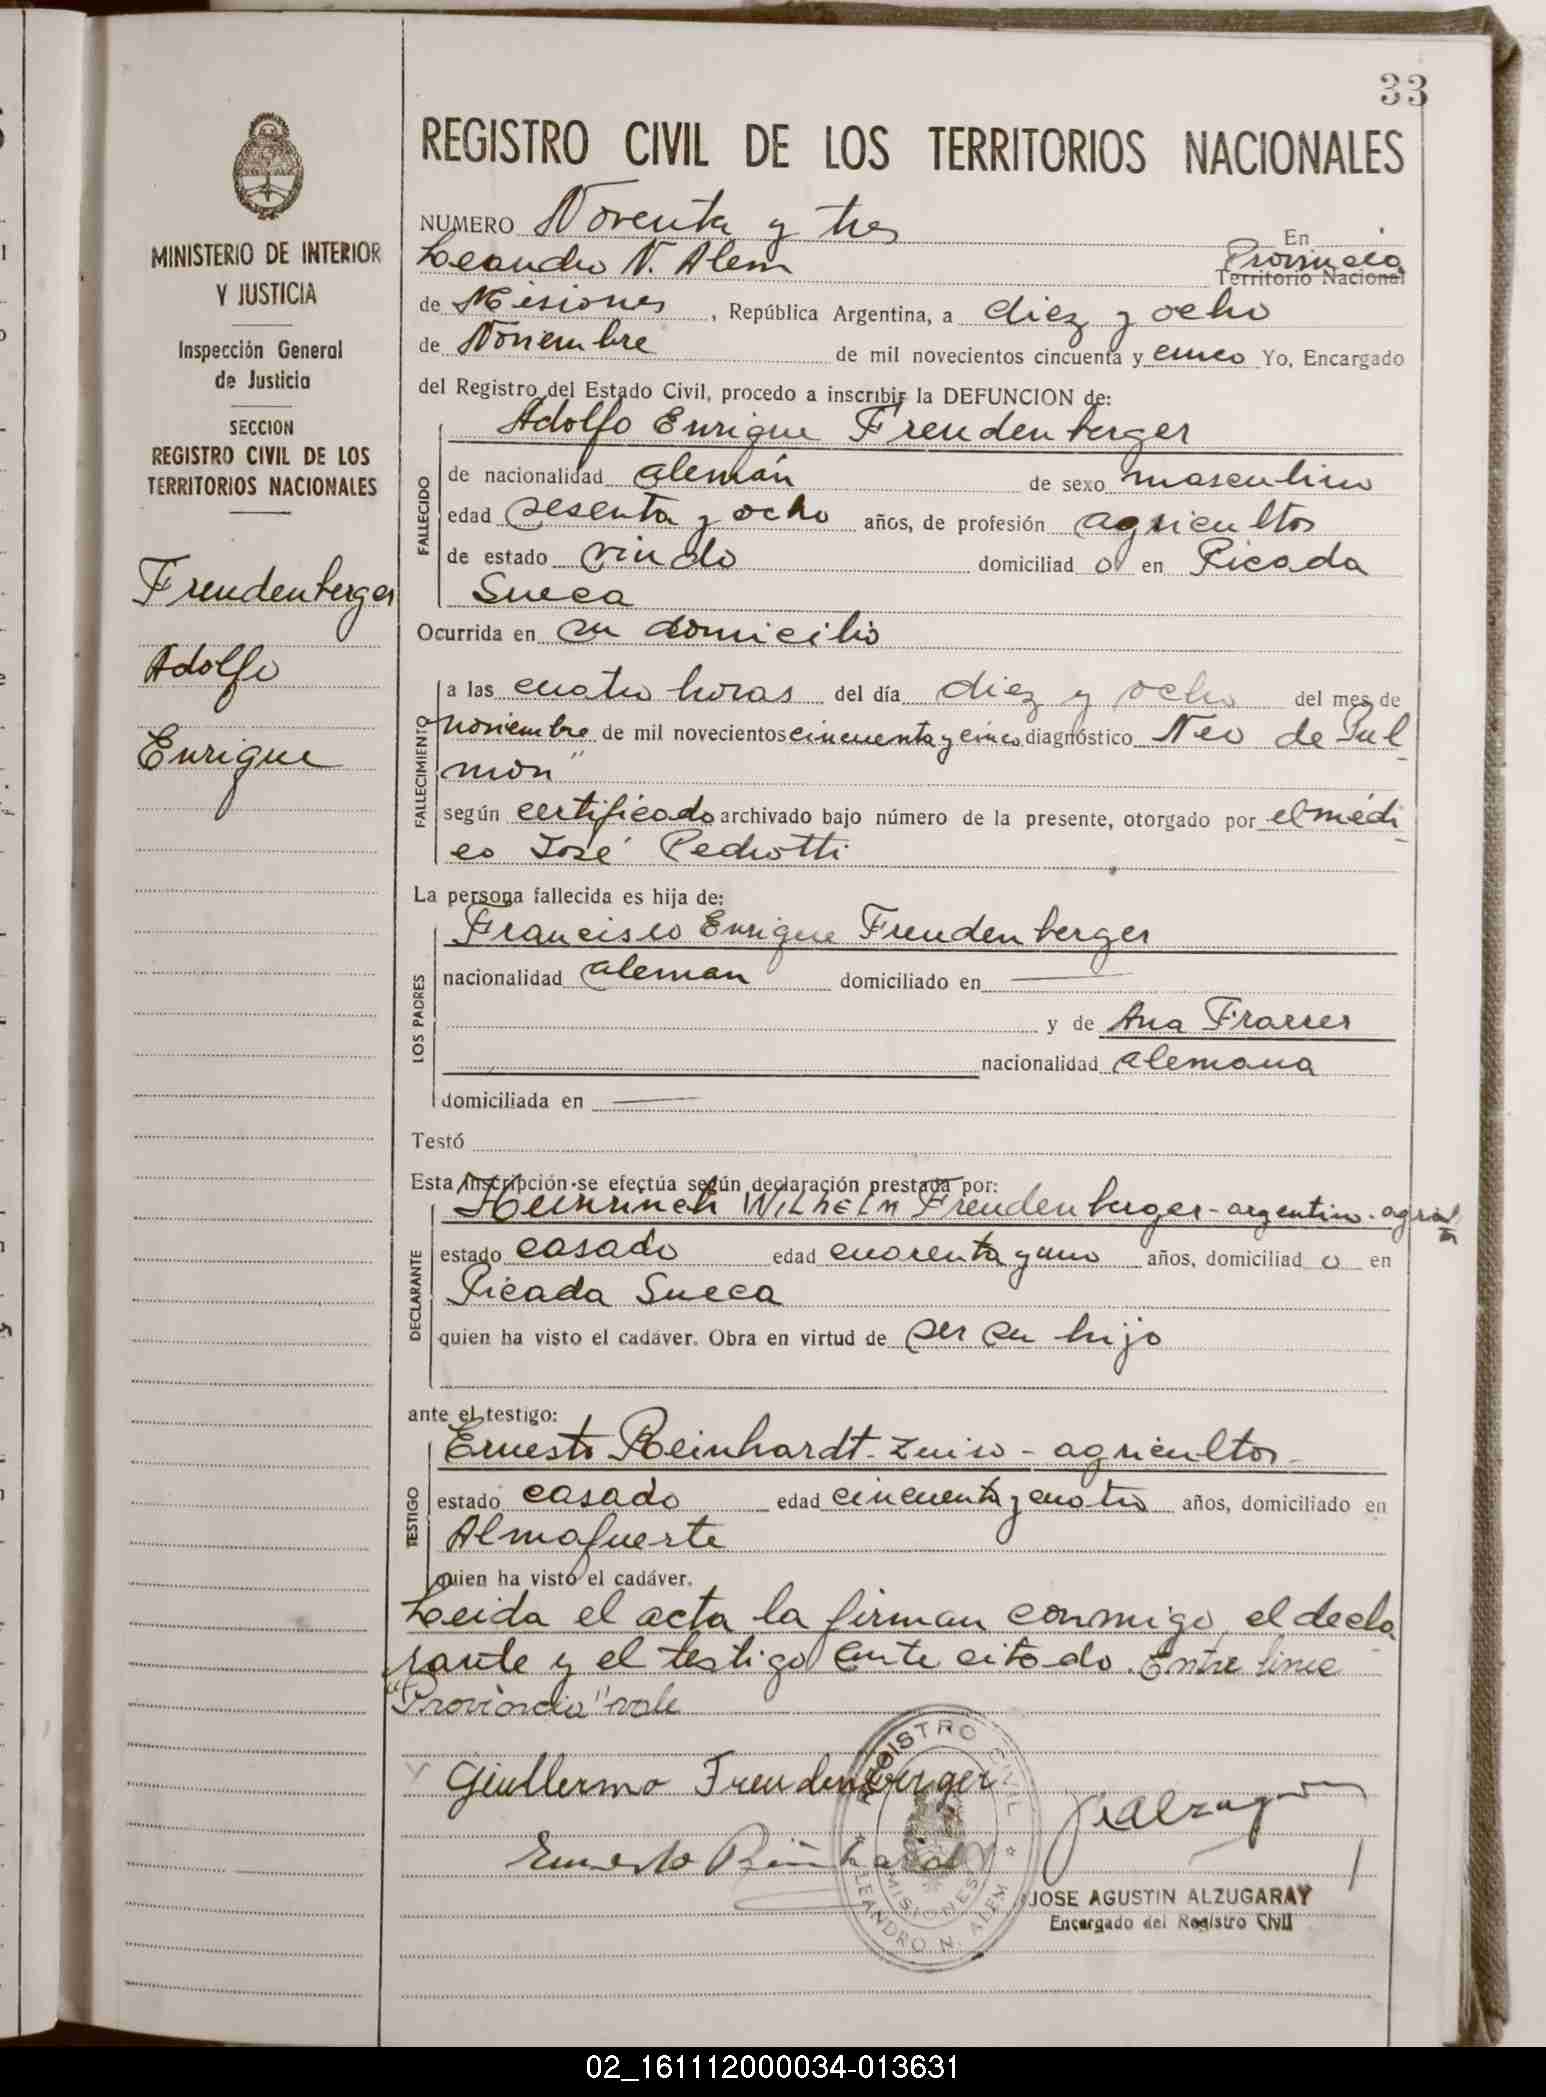 33
MINISTERIO DE INTERIOR
Y JUSTICIA
Inspección General
de Justicia
SECCION
REGISTRO CIVIL DE LOS
TERRITORIOS NACIONALES
Freudenberger
Adolfo
Enrique
REGISTRO CIVIL DE LOS TERRITORIOS NACIONALES
NUMERO Noventa y tres En
Leandro N. Alem Provincia
Territorio Nacional
de Misiones, República Argentina, a diez y ocho
de Noviembre de mil novecientos cincuenta y cinco Yo, Encargado
del Registro del Estado Civil, procedo a inscribir la DEFUNCION de:
Adolfo Enrique Freudenberger
FALLECIDO
de nacionalidad alemán de sexo masculino
edad sesenta y ocho años, de profesión agricultor
de estado viudo domiciliad o en Picada
Sueca
Ocurrida en su domicilio
FALLECIMIENTO
a las cuatro horas del día diez y ocho del mes de
noviembre de mil novecientos cincuenta y cinco diagnóstico Neo de Pul
mon"
según certificado archivado bajo número de la presente, otorgado por el médi
co José Pedrotti
La persona fallecida es hija de:
LOS PADRES
Francisco Enrique Freudenberger
nacionalidad aleman domiciliado en
y de Ana
nacionalidad alemana
domiciliada en
Testó
Esta inscripción se efectúa según declaración prestada por:
DECLARANTE
Heinrinch WILHELM Freudenberger - argentino -
estado casado edad cuarenta y uno años, domiciliad o en
Picada Sueca
quien ha visto el cadáver. Obra en virtud de ser su hijo
ante el testigo:
TESTIGO
Ernesto Reinhardt - zuiso - agricultor -
estado casado edad cincuenta y cuatro años, domiciliado en
Almafuerte
quien ha visto el cadáver.
Leida el acta la firman conmigo, el decla
rante y el testigo ante citado. Entre linea
"Provincia" vale
Giullermo Freudenberger
Ernesto Reinhardt
REGISTRO CIVIL
MISIONES
LEANDRO N. ALEM
JAAlzugaray
JOSE AGUSTIN ALZUGARAY
Encargado del Registro Civil
02_161112000034-013631